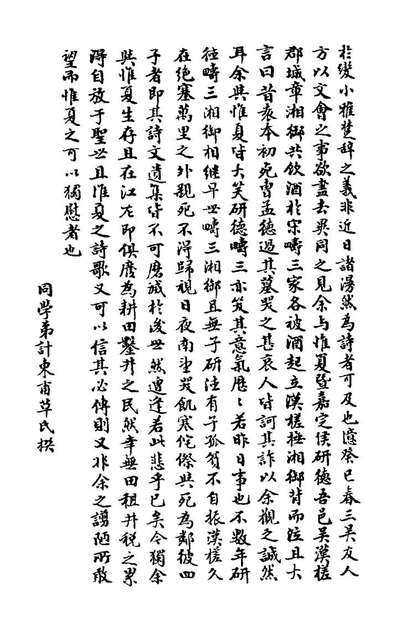 於變小雅楚辭之義非近日諸湯然為詩者可及也憶癸巳春三吳友人
方以文會之事欲盡去異同之見余與惟夏暨嘉定侯研德吾邑吳漢槎
郡城章湘御共飲酒於宋疇三家各被酒起立漢槎撫湘御背而泣且大
言曰昔袁本初死曹孟德過其墓哭之甚哀人皆訶其詐以余觀之誠然
耳余與惟夏皆大笑研德疇三亦笑其意氣歷歷若昨日事也不數年研
德疇三湘御相繼早世疇三湘御且無子研德有子孤窮不自振漢槎久
在絕塞萬里之外親死不得歸視日夜南望哭飢寒侘傺與死為鄰彼四
子者即其詩文遺集皆不可磨滅於後世然遭逢若此悲乎已矣令獨余
與惟夏生存且在江左即俱廢為耕田鑿井之民然幸無田租井稅之累
得自放于聖世且惟夏之詩歌又可以信其必傳則又非余之譾陋所敢
望而惟夏之可以獨慰者也
同學弟計東甫草氏撰